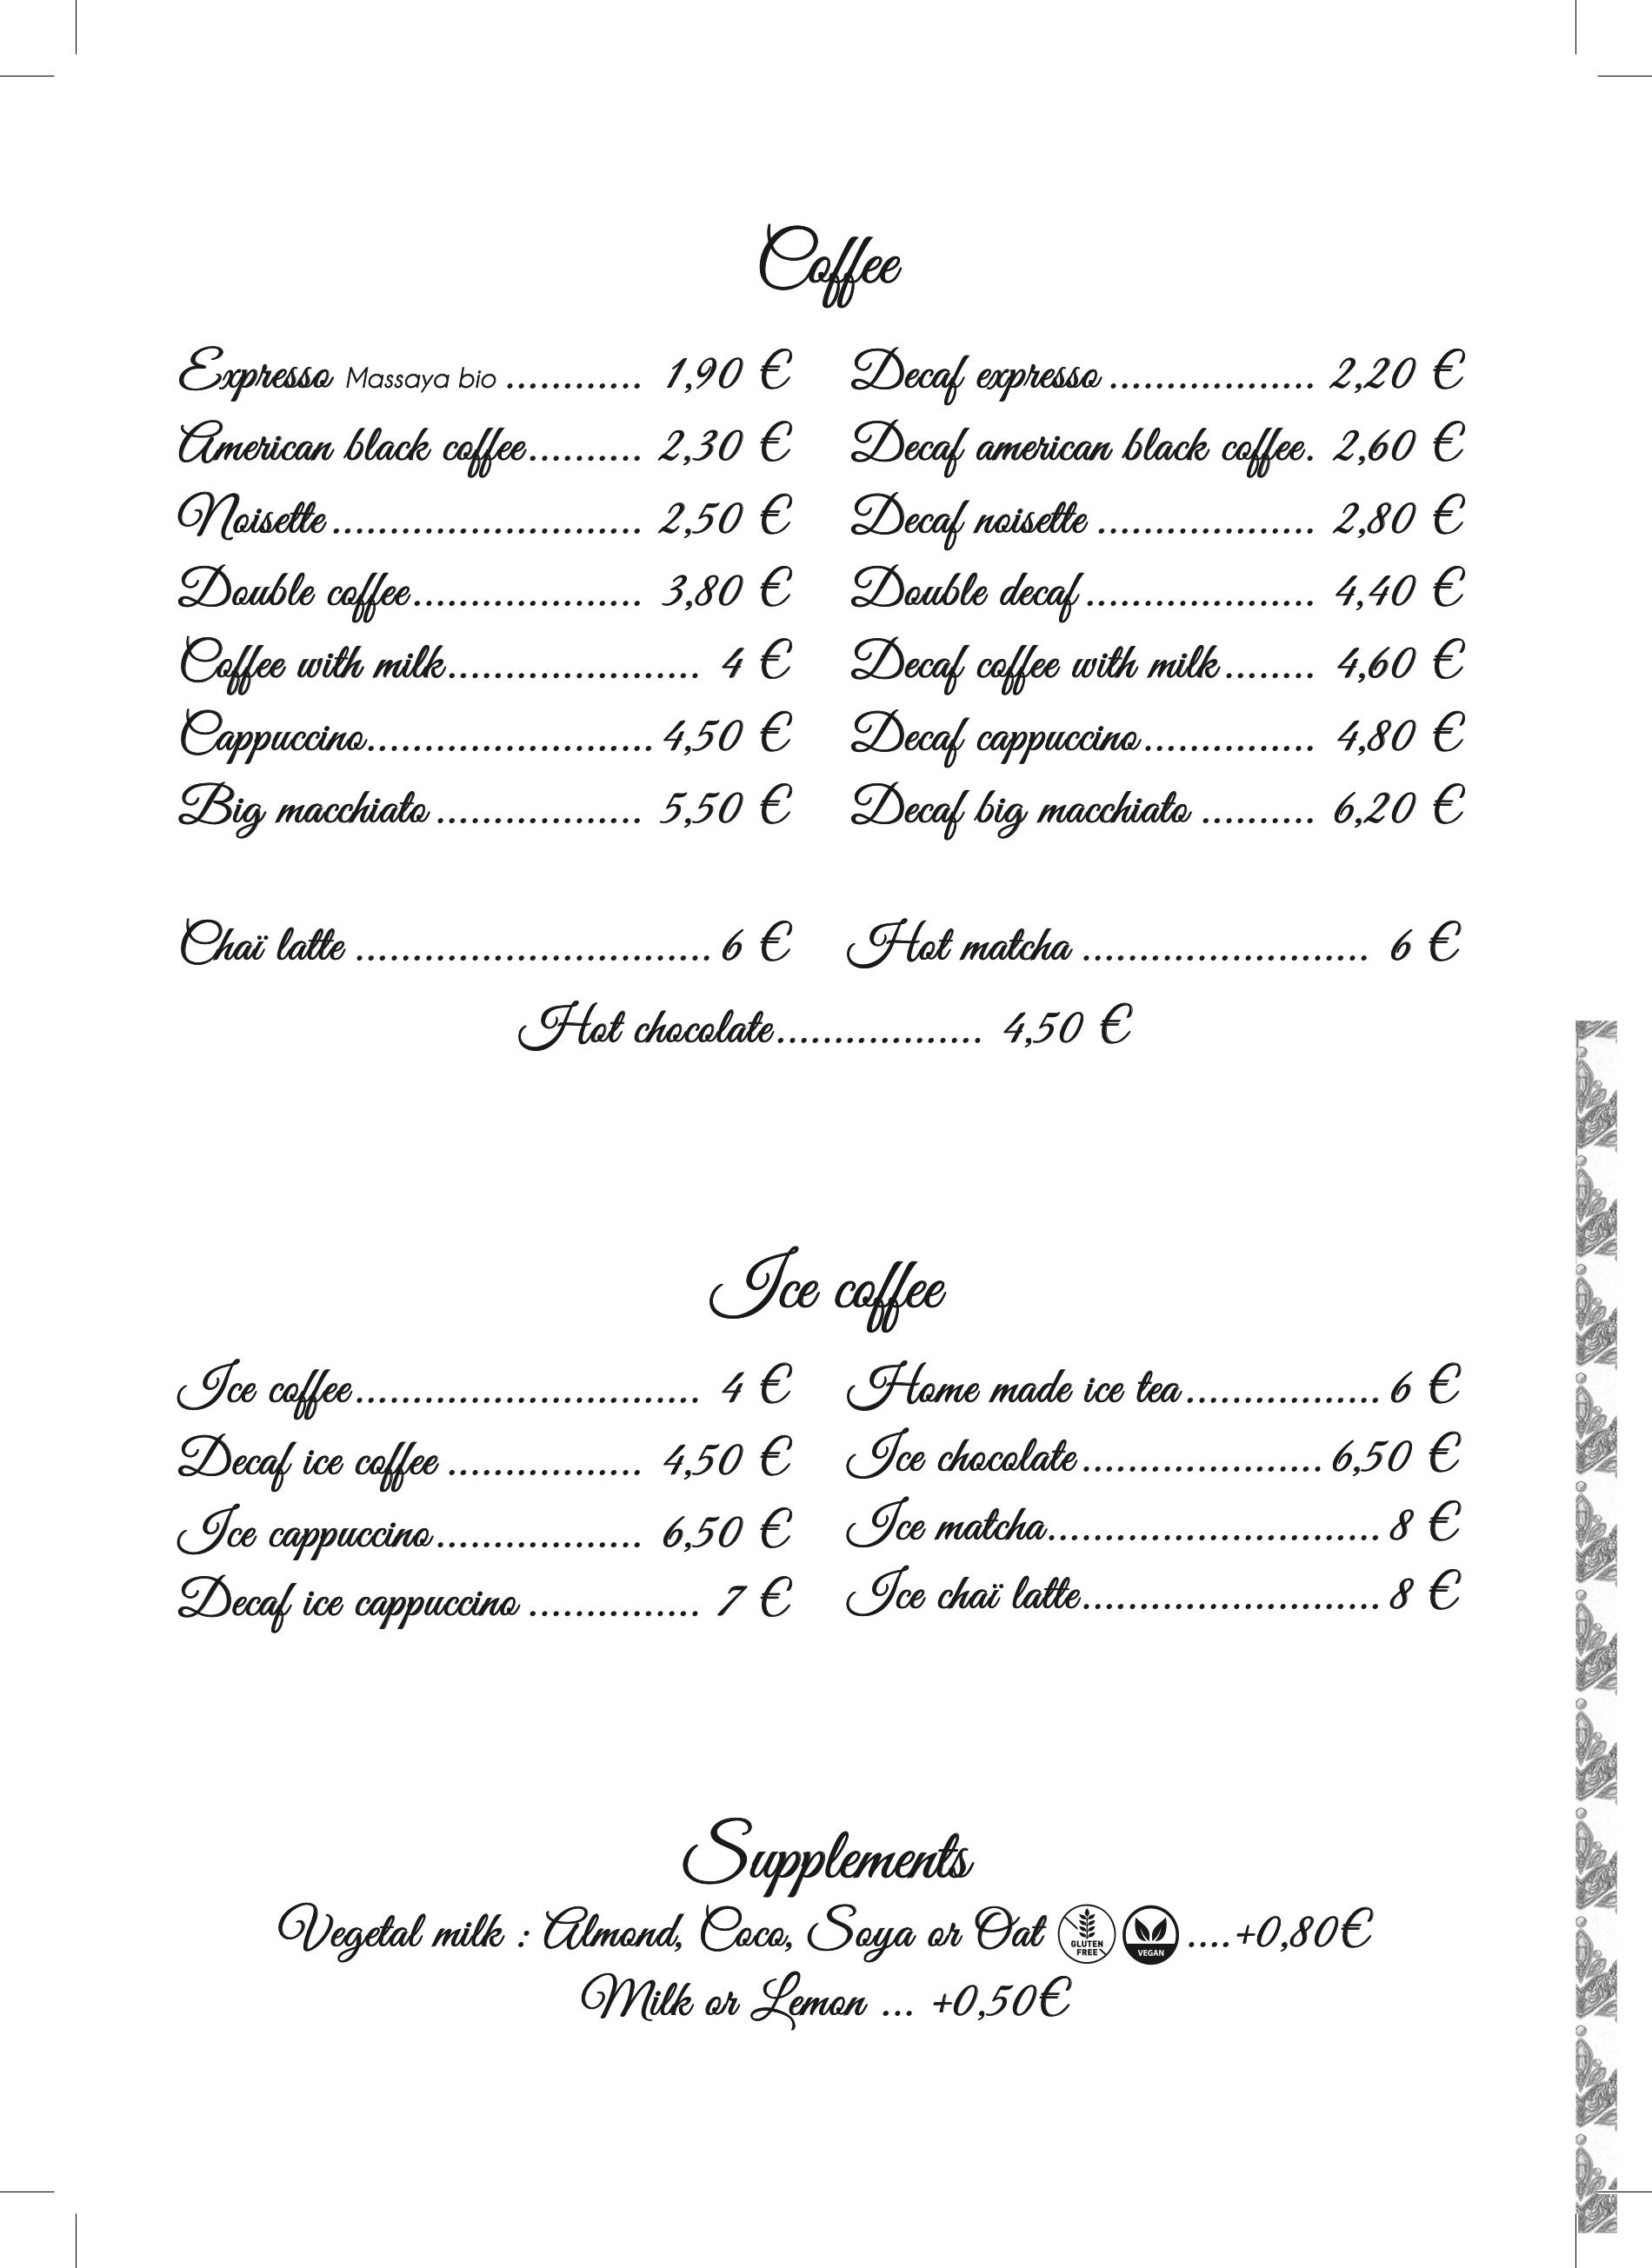 Coffee
Expresso Massaya bio ............ 1,90 €
American black coffee.......... 2,30 €
Noisette ........................... 2,50 €
Double coffee.................... 3,80 €
Coffee with milk...................... 4 €
Cappuccino......................... 4,50 €
Big macchiato .................. 5,50 €
Decaf expresso .................. 2,20 €
Decaf american black coffee. 2,60 €
Decaf noisette ................... 2,80 €
Double decaf .................... 4,40 €
Decaf coffee with milk ........ 4,60 €
Decaf cappuccino ............... 4,80 €
Decaf big macchiato .......... 6,20 €
Chaï latte ............................... 6 €
Hot matcha ......................... 6 €
Hot chocolate.................. 4,50 €
Ice coffee
Ice coffee.............................. 4 €
Decaf ice coffee ................. 4,50 €
Ice cappuccino .................. 6,50 €
Decaf ice cappuccino ............... 7 €
Home made ice tea ................. 6 €
Ice chocolate ..................... 6,50 €
Ice matcha............................. 8 €
Ice chaï latte.......................... 8 €
Supplements
Vegetal milk : Almond, Coco, Soya or Oat GLUTEN FREE VEGAN ....+0,80€
Milk or Lemon ... +0,50€